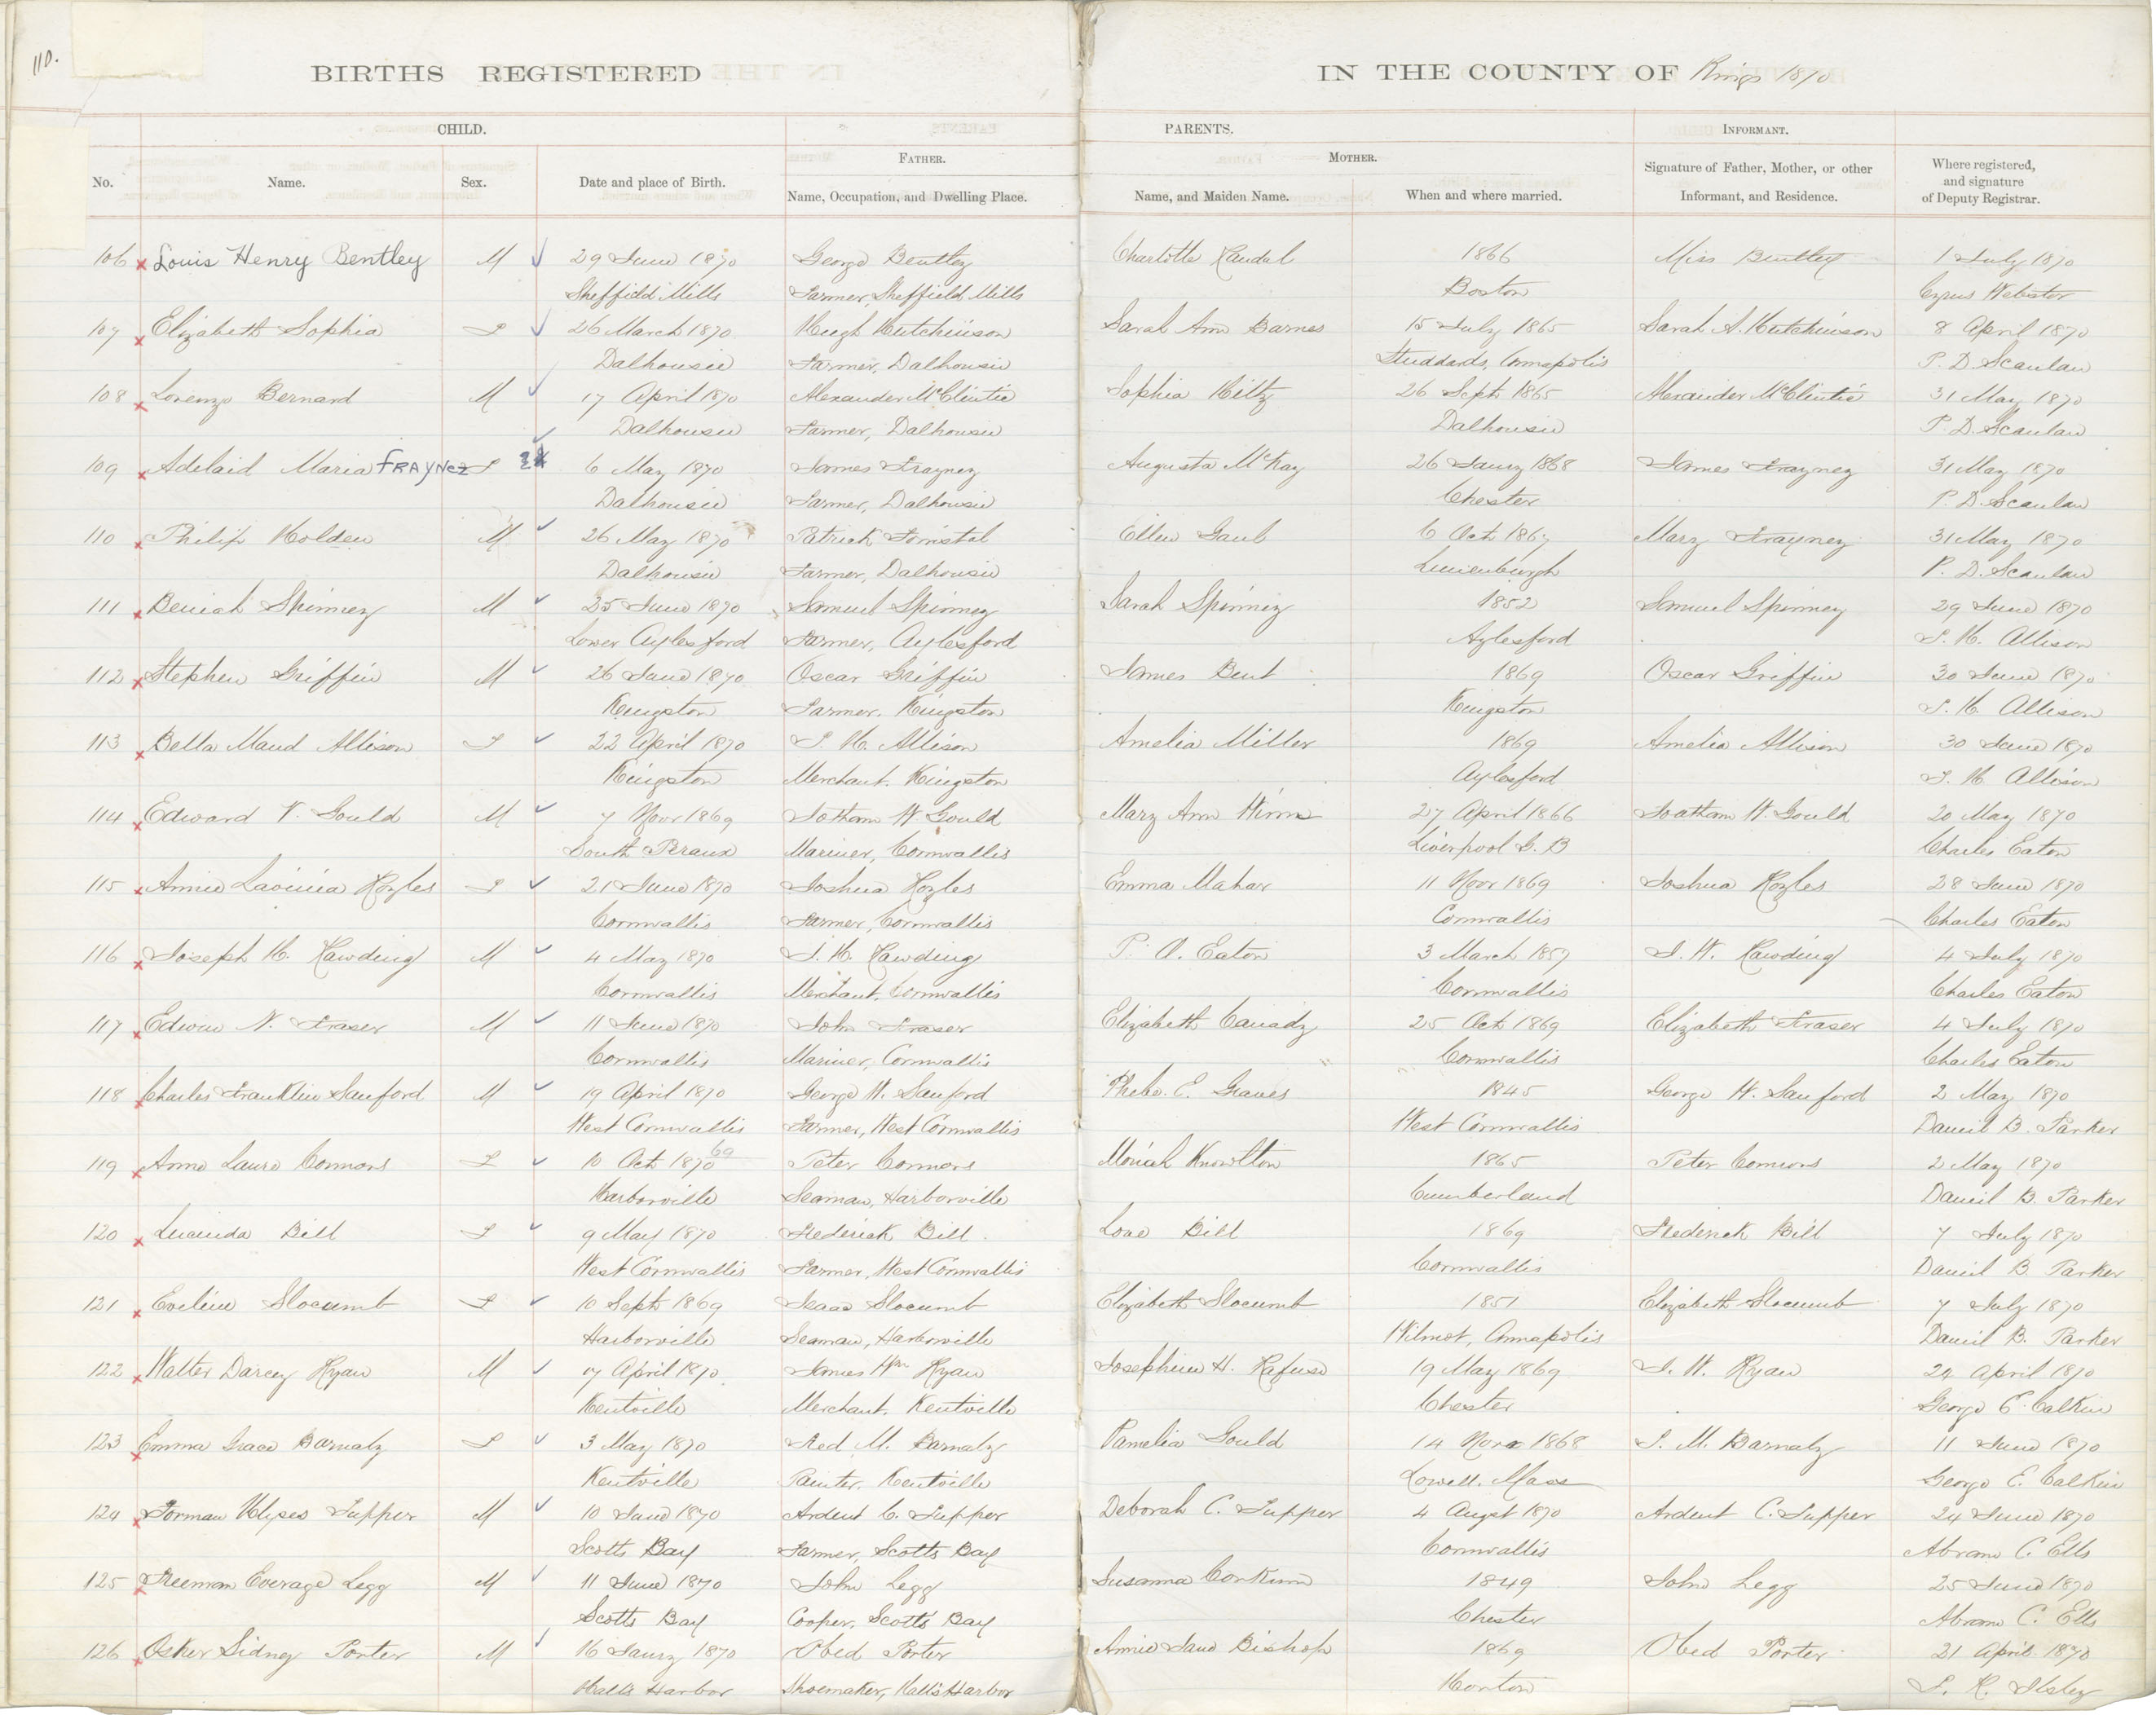 110.
BIRTHS REGISTERED IN THE COUNTY OF Kings 1870
CHILD. PARENTS. INFORMANT.
FATHER. MOTHER.
No. Name. Sex. Date and place of Birth. Name, Occupation, and Dwelling Place. Name, and Maiden Name. When and where married. Signature of Father, Mother, or other Informant, and Residence. Where registered, and signature of Deputy Registrar.
106 Louis Henry Bentley M 29 June 1870 George Bentley Charlotte Randal 1866 Miss Bentley 1 July 1870
Sheffield Mills Farmer, Sheffield Mills Boston Cyrus Webster
107 Elizabeth Sophia F 26 March 1870 Hugh Hutchinson Sarah Ann Barnes 15 July 1865 Sarah A. Hutchinson 8 April 1870
Dalhousie Farmer, Dalhousie Studdards, Annapolis P. D. Scanlan
108 Lorenzo Bernard M 17 April 1870 Alexander McClintic Sophia Hiltz 26 Sept 1865 Alexander McClintic 31 May 1870
Dalhousie Farmer, Dalhousie Dalhousie P. D. Scanlan
109 Adelaid Maria FRAYNEZ F 6 May 1870 James Frayney Augusta McKay 26 Jany 1868 James Frayney 31 May 1870
Dalhousie Farmer, Dalhousie Chester P. D. Scanlan
110 Philip Holden M 26 May 1870 Patrick Forristal Ellen Gaul 6 Oct 1867 Mary Frayney 31 May 1870
Dalhousie Farmer, Dalhousie Lunenburgh P. D. Scanlan
111 Beniah Spinney M 25 June 1870 Samuel Spinney Sarah Spinney 1852 Samuel Spinney 29 June 1870
Lower Aylesford Farmer, Aylesford Aylesford J. H. Allison
112 Stephen Griffin M 26 June 1870 Oscar Griffin James Bent 1869 Oscar Griffin 30 June 1870
Kingston Farmer. Kingston Kingston J. H. Allison
113 Bella Maud Allison F 22 April 1870 J. H. Allison Amelia Miller 1869 Amelia Allison 30 June 1870
Kingston Merchant. Kingston Aylesford J. H. Allison
114 Edward V. Gould M 7 Novr 1869 Jotham W Gould Mary Ann Winn 27 April 1866 Joatham W. Gould 20 May 1870
South Peraux Mariner, Cornwallis Liverpool G. B Charles Eaton
115 Annie Lavinia Royles F 21 June 1870 Joshua Royles Emma Mahar 11 Novr 1869 Joshua Royles 28 June 1870
Cornwallis Farmer, Cornwallis Cornwallis Charles Eaton
116 Joseph H. Rawding M 4 May 1870 J. H. Rawding P. A. Eaton 3 March 1857 J. W. Rawding 4 July 1870
Cornwallis Merchant, Cornwallis Cornwallis Charles Eaton
117 Edwin N. Fraser M 11 June 1870 John Fraser Elizabeth Canady 25 Oct 1869 Elizabeth Fraser 4 July 1870
Cornwallis Mariner, Cornwallis Cornwallis Charles Eaton
118 Charles Franklin Sanford M 19 April 1870 George W. Sanford Phebe. E. Graves 1845 George W. Sanford 2 May 1870
West Cornwallis Farmer, West Cornwallis West Cornwallis Daniel B. Parker
119 Anne Laura Connors F 10 Oct 1870 69 Peter Connors Moriah Knowlton 1865 Peter Connors 2 May 1870
Harborville Seaman, Harborville Cumberland Daniel B. Parker
120 Lucinda Bill F 9 May 1870 Frederick Bill Love Bill 1869 Frederick Bill 7 July 1870
West Cornwallis Farmer, West Cornwallis Cornwallis Daniel B. Parker
121 Eveline Slocumb F 10 Sept 1869 Isaac Slocumb Elizabeth Slocumb 1851 Elizabeth Slocumb 7 July 1870
Harborville Seaman, Harborville Wilmot, Annapolis Daniel B. Parker
122 Walter Darcey Ryan M 17 April 1870 James Wm Ryan Josephine H. Rafuse 19 May 1869 J. W. Ryan 24 April 1870
Kentville Merchant. Kentville Chester George E. Calkin
123 Emma Grace Barnaby F 3 May 1870 Fred M. Barnaby Pamelia Gould 14 Novr 1868 F. M. Barnaby 11 June 1870
Kentville Painter. Kentville Lowell. Mass George E. Calkin
124 Forman Ulyses Tupper M 10 June 1870 Ardent C. Tupper Deborah C. Tupper 4 Augst 1870 Ardent C. Tupper 24 June 1870
Scotts Bay Farmer, Scotts Bay Cornwallis Abram C. Ells
125 Freeman Everage Legg M 11 June 1870 John Legg Susanna Corkum 1849 John Legg 25 June 1870
Scotts Bay Cooper, Scotts Bay Chester Abram C. Ells
126 Osker Sidney Porter M 16 Jany 1870 Obed Porter Annie Jane Bishop 1869 Obed Porter 21 April 1870
Halls Harbor Shoemaker, Halls Harbor Horton